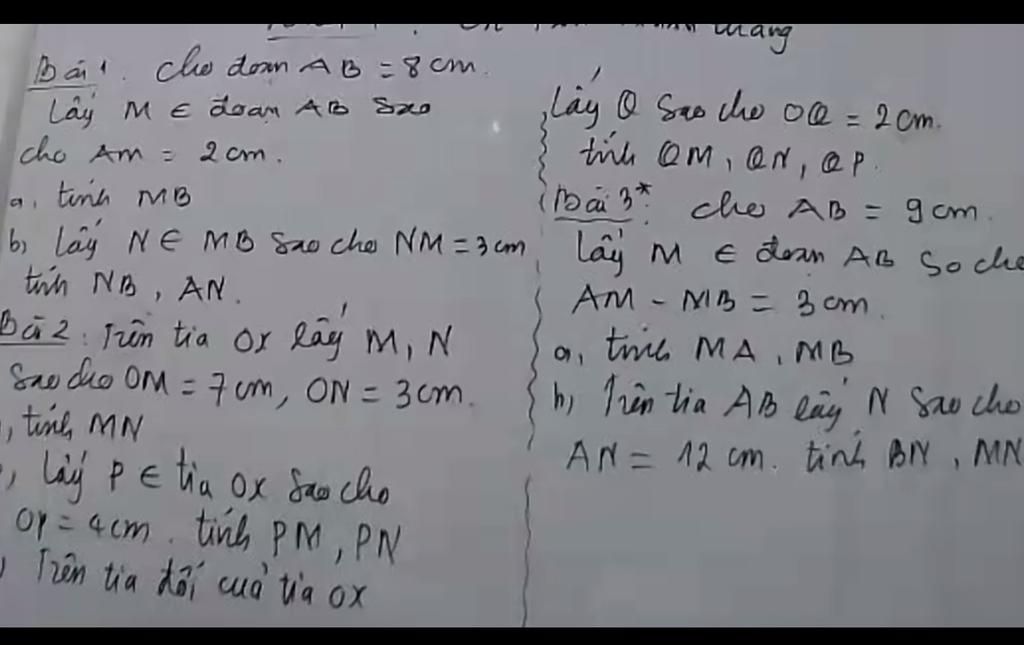 thẳng
Bài 1. Cho đoạn AB = 8 cm.
Lấy M ∈ đoạn AB sao
cho AM = 2 cm.
a, tính MB
b, Lấy N ∈ MB sao cho NM = 3 cm
tính NB, AN.
Bài 2: Trên tia Ox lấy M, N
sao cho OM = 7 cm, ON = 3 cm.
, tính MN
, Lấy P ∈ tia Ox sao cho
OP = 4 cm. tính PM, PN
, Trên tia đối của tia Ox
Lấy Q sao cho OQ = 2 cm.
tính QM, QN, QP.
Bài 3*: Cho AB = 9 cm.
Lấy M ∈ đoạn AB so cho
AM - MB = 3 cm.
a, tính MA, MB
b, Trên tia AB lấy N sao cho
AN = 12 cm. tính BN, MN